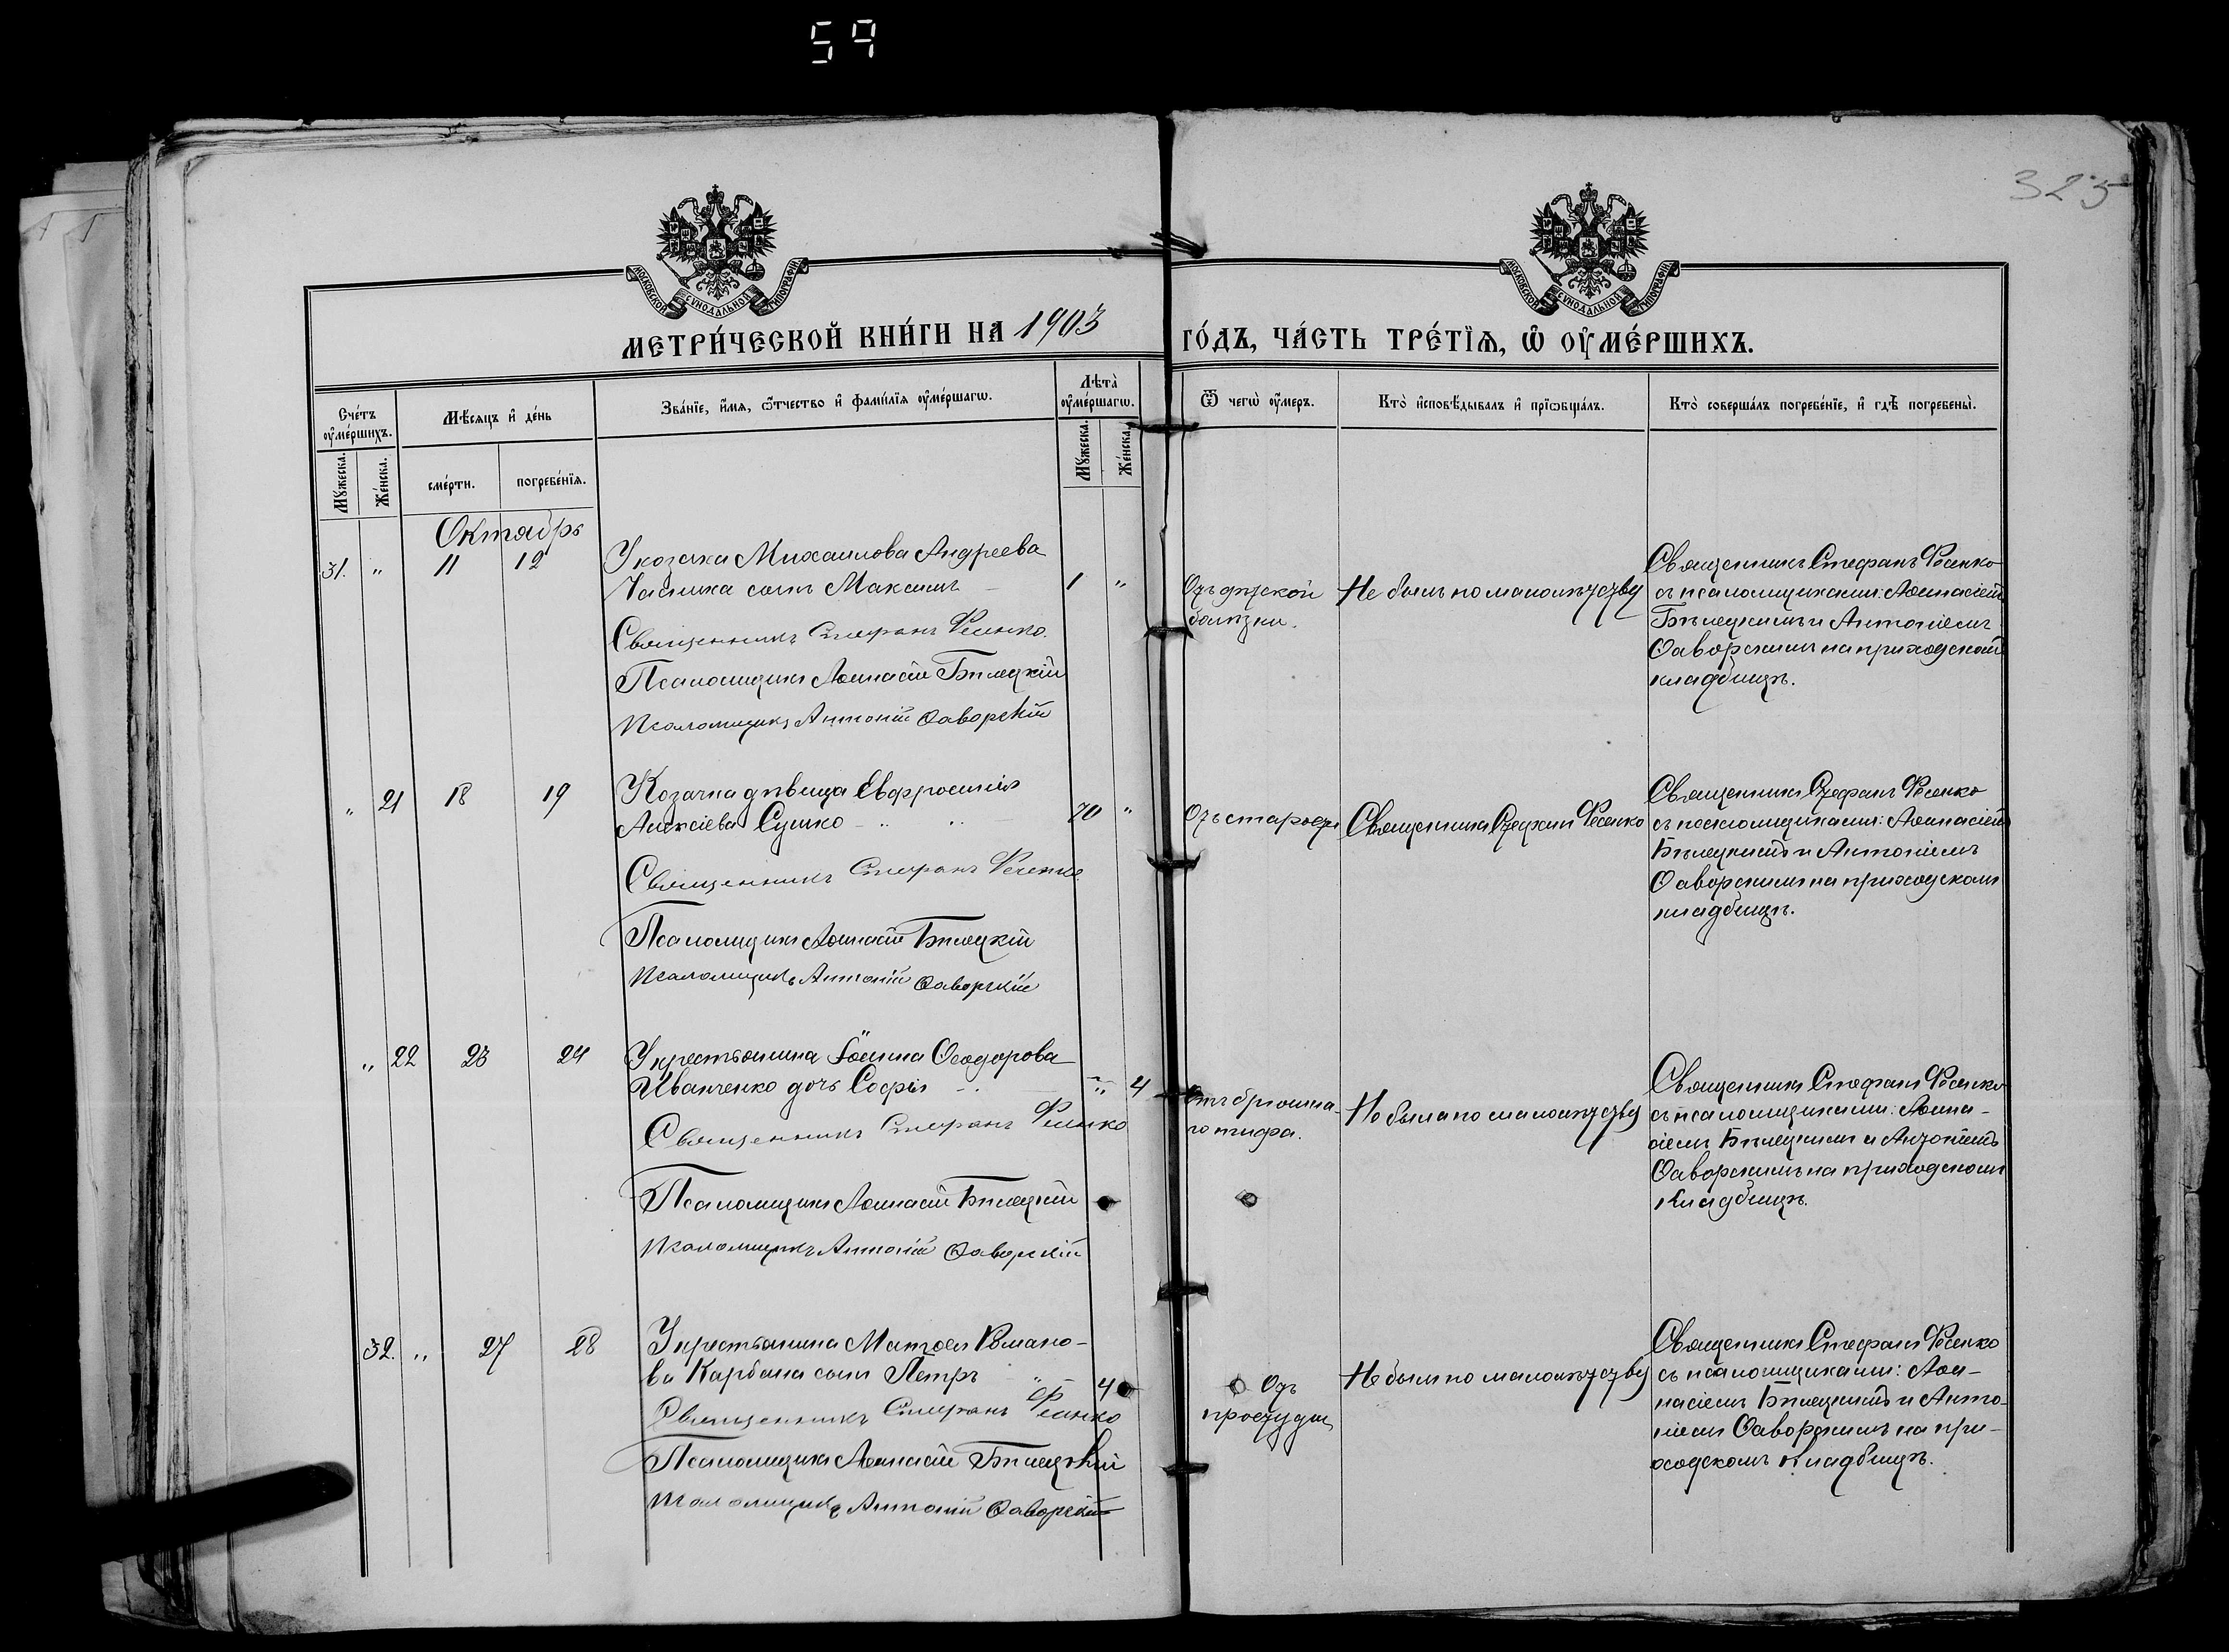 59
325
МОСКОВСКОЙ СѴНОДАЛЬНОЙ ТИПОГРАФІИ
МОСКОВСКОЙ СѴНОДАЛЬНОЙ ТИПОГРАФІИ
МЕТРИ́ЧЕСКОЙ КНИ́ГИ НА 1903 ГО́ДЪ, ЧА́СТЬ ТРЕ́ТЇѦ, Ѽ ОУ҆МЕ́РШИХЪ.
Сче́тъ оу҆ме́ршихъ.
Мѣ́сяцъ и҆ де́нь
Зва́нїе, и҆́мѧ, ѻ҆́тчество и҆ фами́лїѧ оу҆ме́ршагѡ.
Лѣта̀ оу҆ме́ршагѡ.
Ѿ чегѡ̀ оу҆́меръ.
Кто̀ и҆сповѣ́дывалъ и҆ прїѡбща́лъ.
Кто̀ соверша́лъ погребе́нїе, и҆ гдѣ̀ погребены̀.
Мꙋ́жеска.
Же́нска.
сме́рти.
погребе́нїѧ.
Мꙋ́жеска.
Же́нска.
Октябрь
31. " 11 12
У козака Михаилова Андреева
сынъ Максимъ 1 "
Священникъ Стефанъ Фесенко.
Псаломщикъ Аѳанасій Бѣлецкій
Псаломщикъ Антоній Ѳаворскій
Отъ дѣтской
болѣзни.
Не былъ по малолѣтству
Священникъ Стефанъ Фесенко
съ псаломщиками: Аѳанасіемъ
Бѣлецкимъ и Антоніемъ
Ѳаворскимъ на приходскомъ
кладбищѣ.
" 21 18 19
Козачка дѣвица Евфросинія
Алексіева Сушко 70 "
Священникъ Стефанъ Фесенко
Псаломщикъ Аѳанасій Бѣлецкій
Псаломщикъ Антоній Ѳаворскій
Отъ старости
Священникъ Стефанъ Фесенко
Священникъ Стефанъ Фесенко
съ псаломщиками: Аѳанасіемъ
Бѣлецкимъ и Антоніемъ
Ѳаворскимъ на приходскомъ
кладбищѣ.
" 22 23 24
У крестьянина Іоанна Ѳеодорова
Иванченко дочь Софія " 4
Священникъ Стефанъ Фесенко
Псаломщикъ Аѳанасій Бѣлецкій
Псаломщикъ Антоній Ѳаворскій
Отъ брюшна-
го тифа.
Не была по малолѣтству
Священникъ Стефанъ Фесенко
съ псаломщиками: Аѳана-
сіемъ Бѣлецкимъ и Антоніемъ
Ѳаворскимъ на приходскомъ
кладбищѣ.
32. " 27 28
У крестьянина Матѳея Романо-
ва Карбана сынъ Петръ 4
Священникъ Стефанъ Фесенко
Псаломщикъ Аѳанасій Бѣлецкій
Псаломщикъ Антоній Ѳаворскій
Отъ
простуды
Не былъ по малолѣтству
Священникъ Стефанъ Фесенко
съ псаломщиками: Аѳа-
насіемъ Бѣлецкимъ и Анто-
ніемъ Ѳаворскимъ на при-
ходскомъ кладбищѣ.